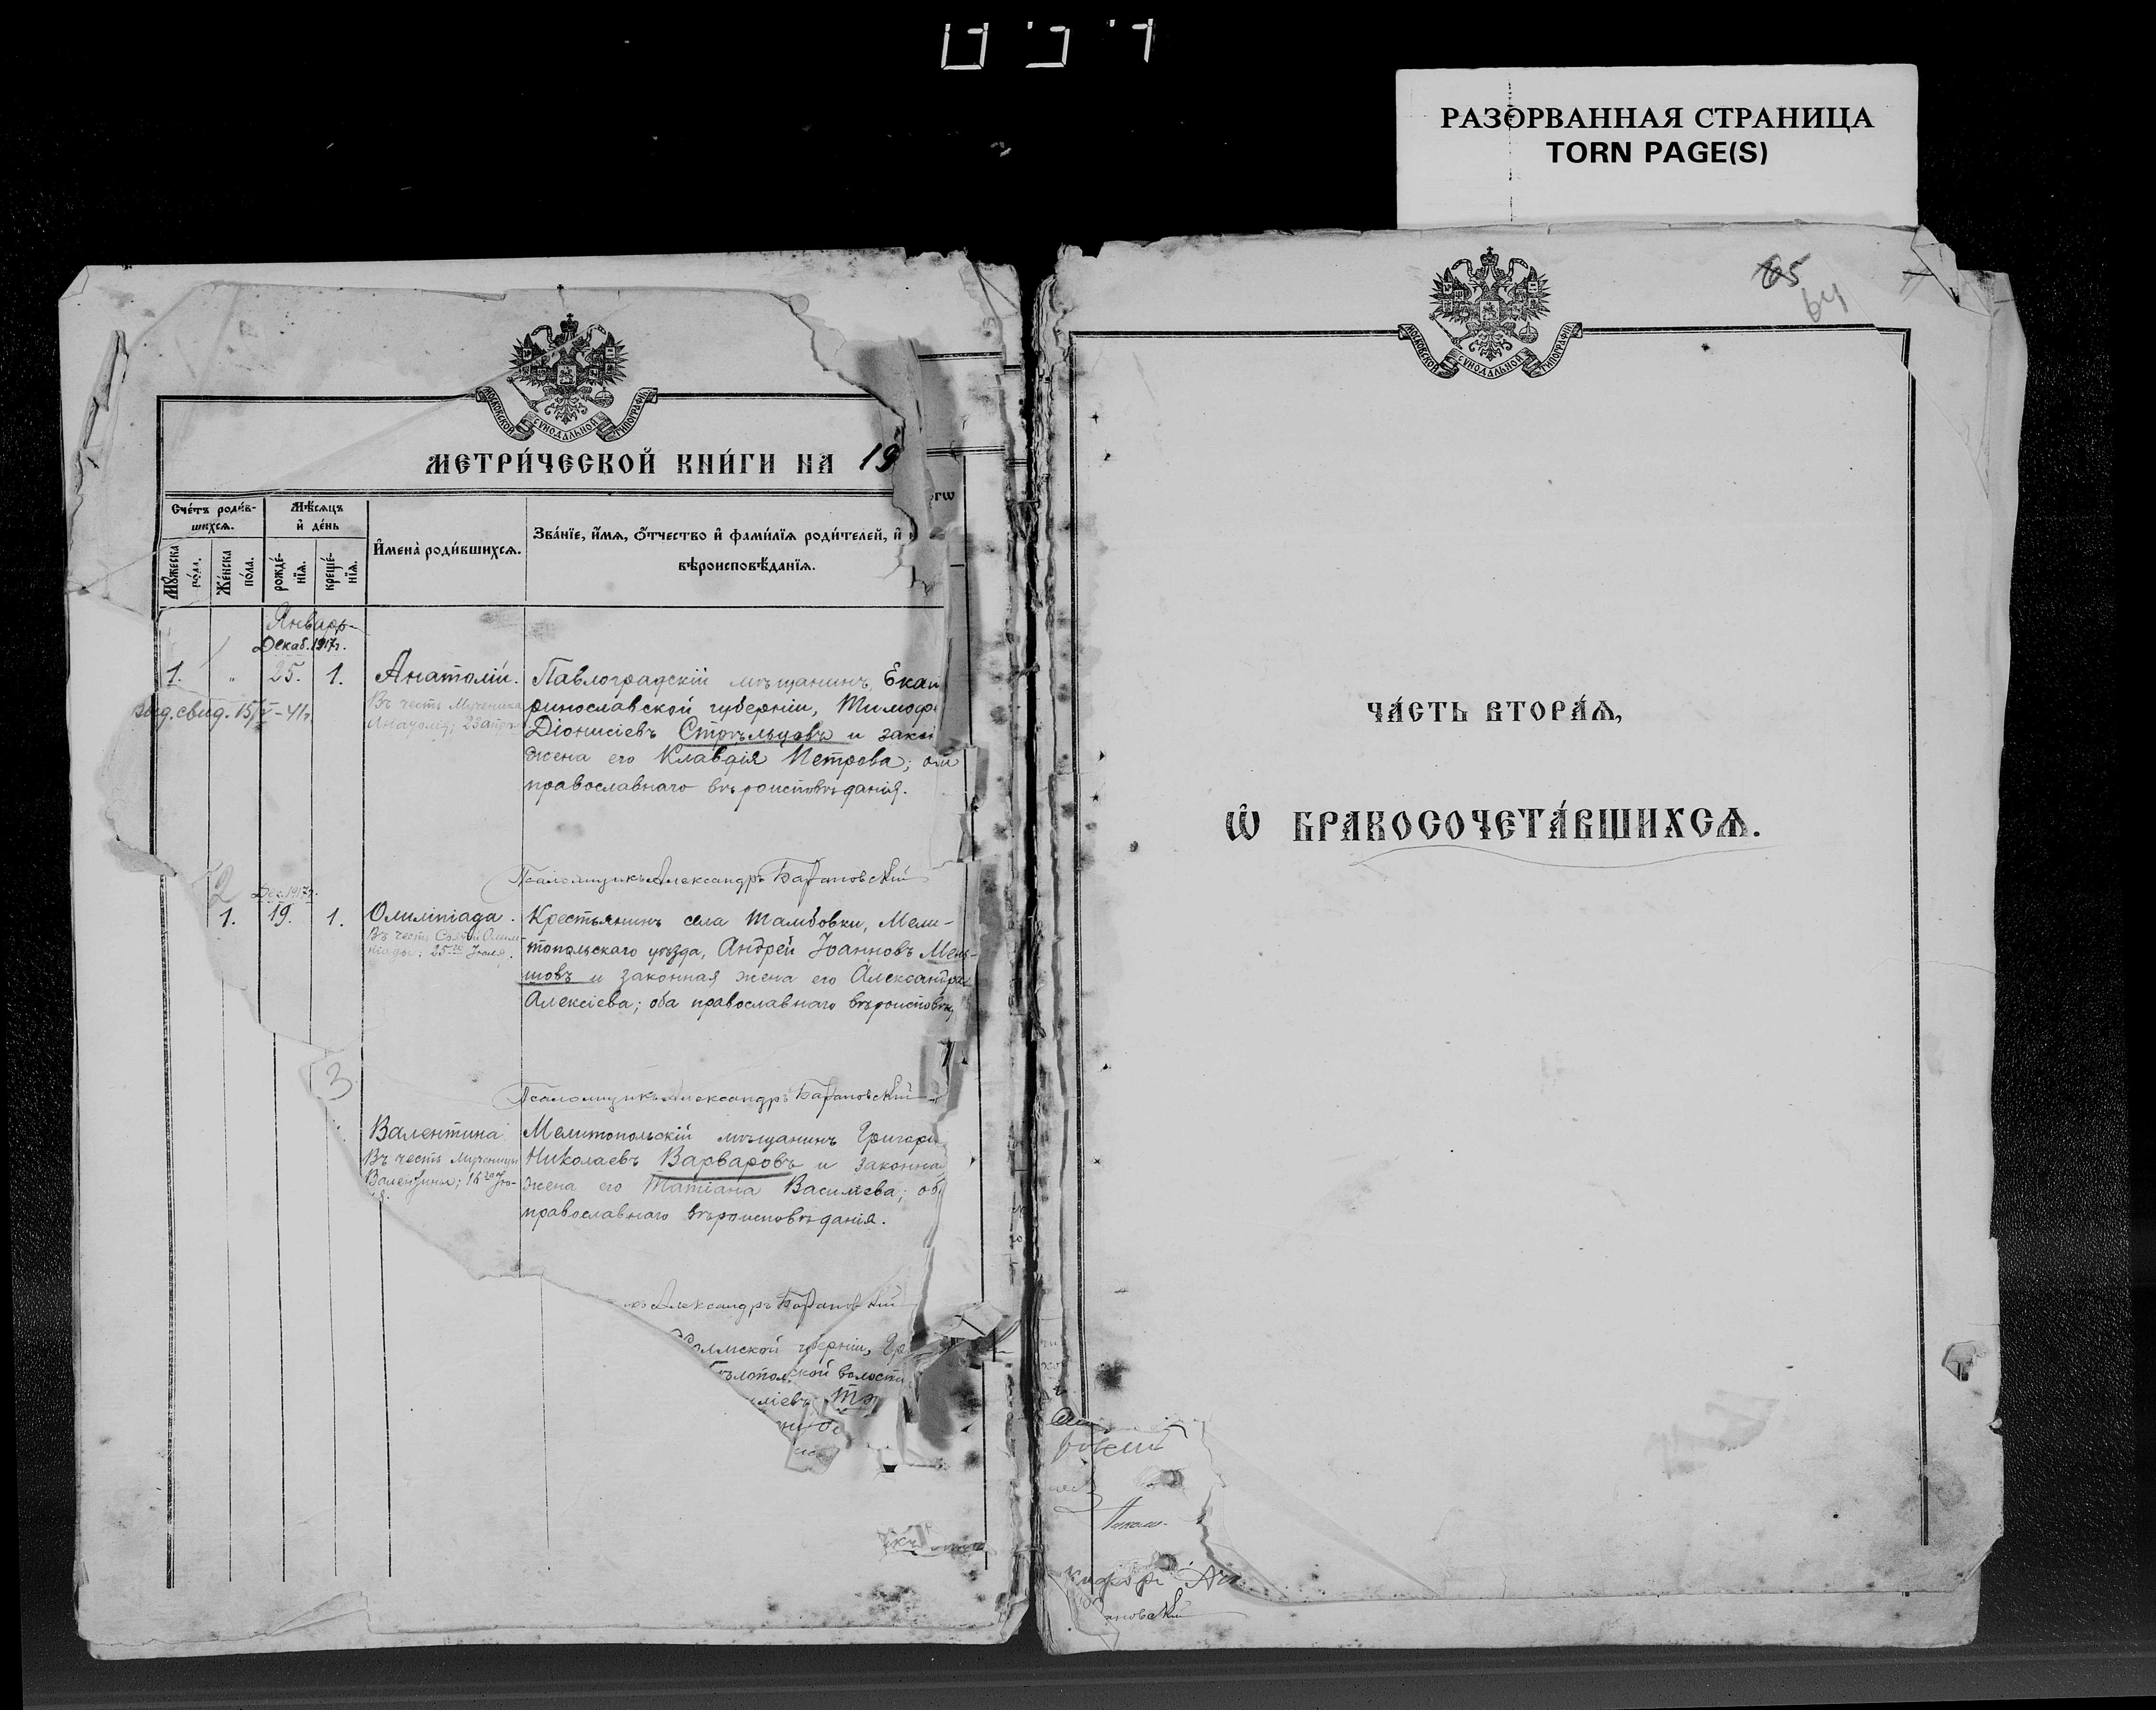 РАЗОРВАННАЯ СТРАНИЦА
TORN PAGE(S)
МОСКОВСКОЙ СѴНОДАЛЬНОЙ ТИПОГРАФІИ
МЕТРИ́ЧЕСКОЙ КНИ́ГИ НА 19
Сче́тъ роди́вшихся.
Мѣ́сяцъ и҆ де́нь
Мꙋ́жеска по́ла.
Же́нска по́ла.
рожде́нїѧ.
креще́нїѧ.
И҆мена̀ роди́вшихсѧ.
Зва́нїе, и҆́мѧ, ѻ҆́тчество и҆ фами́лїѧ роди́телей, и҆
вѣроисповѣ́данїѧ.
гѡ
Январь
Декаб. 1917г.
1. " 25. 1. Анатолій.
Выд. свид. 15/V-41г.
Въ честь Мученика
Анатолія; 23 апр.
Павлоградскій мѣщанинъ, Екат
ринославской губерніи, Тимоф
Діонисіевъ Стрѣльцовъ и закон
жена его Клавдія Петрова; оба
православнаго вѣроисповѣданія.
Псаломщикъ Александръ Барановскій
2 Дек. 1917г.
1. 19. 1. Олимпіада.
Въ честь Святой Олим-
піады; 25го Іюля.
Крестьянинъ села Тамбовки, Мели-
топольскаго уѣзда, Андрей Іоанновъ Мень-
шовъ и законная жена его Александра
Алексіева; оба православнаго вѣроисповѣд
3
Псаломщикъ Александръ Барановскій
Валентина
Въ честь Мученицы
Валентины; 16го Ію-
Мелитопольскій мѣщанинъ Григорі
Николаевъ Варваровъ и законная
жена его Татіана Василіева; оба
православнаго вѣроисповѣданія.
Александръ Барановскій
Холмской губерніи, Гр
ѣлопольской волости
иліевъ
65
64
МОСКОВСКОЙ СѴНОДАЛЬНОЙ ТИПОГРАФІИ
ЧА́СТЬ ВТОРА́Ѧ,
Ѽ БРАКОСОЧЕТА́ВШИХСѦ.
ановскій